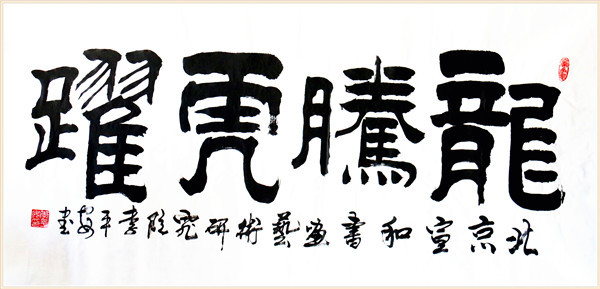 龍騰虎躍
北京宣和書畫藝術研究院李平安书